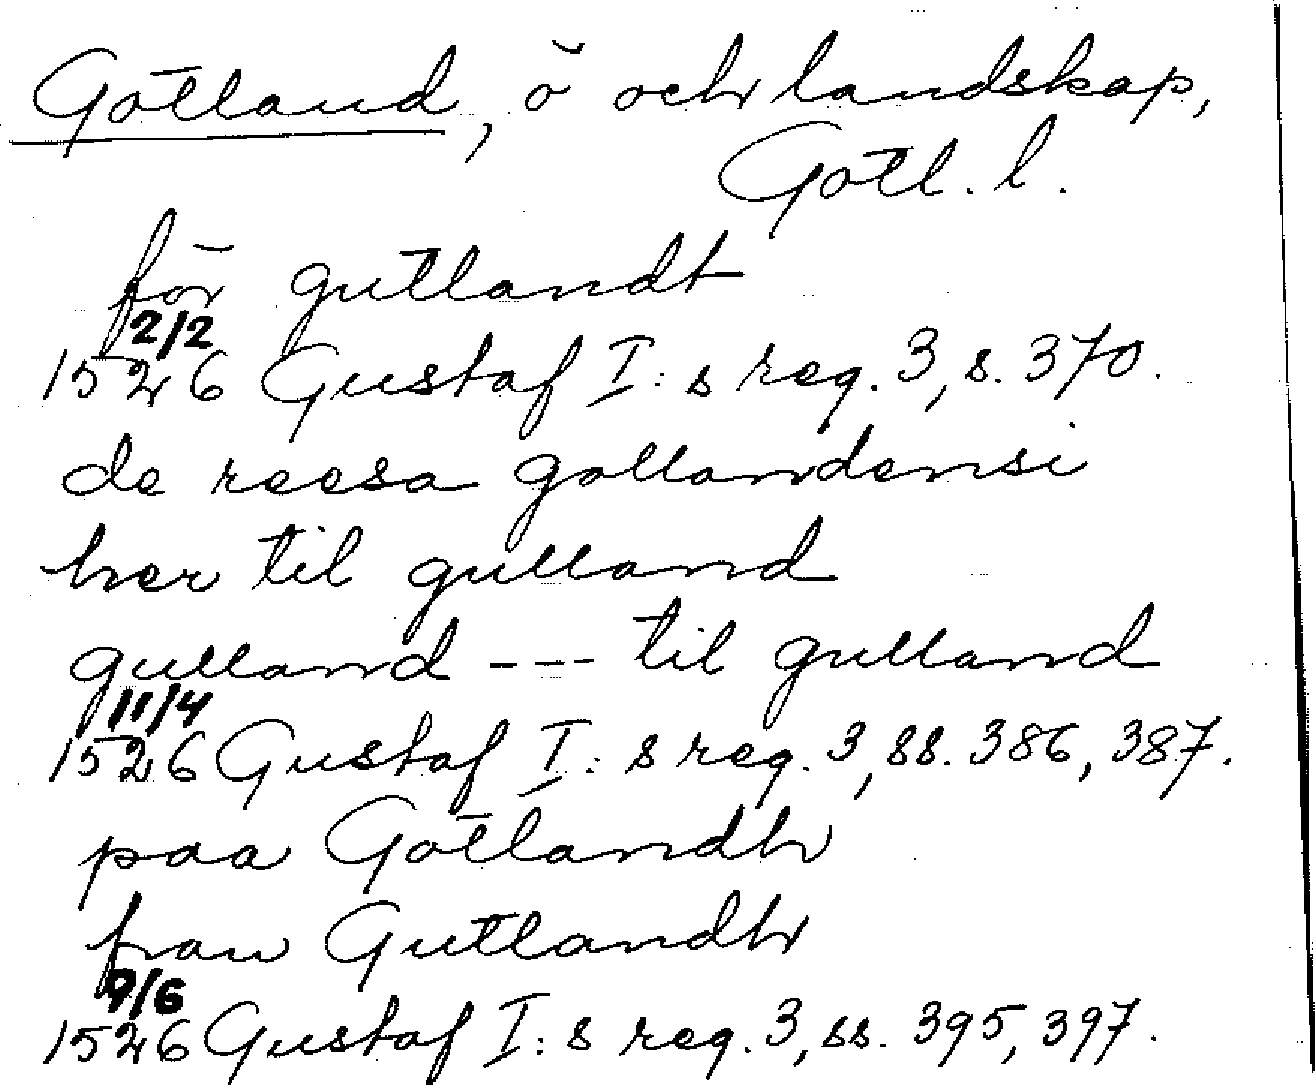 Gotland, ö och landskap,
Gotl. l.
för gutlandt
2/2
1526 Gustaf I:s reg. 3, s. 370.
de reesa gollandensi
her til gulland
gulland --- til gulland
11/4
1526 Gustaf I:s reg. 3, ss. 386, 387.
paa Gotlandh
fran Gutlandh
9/6
1526 Gustaf I:s reg. 3, ss. 395, 397.